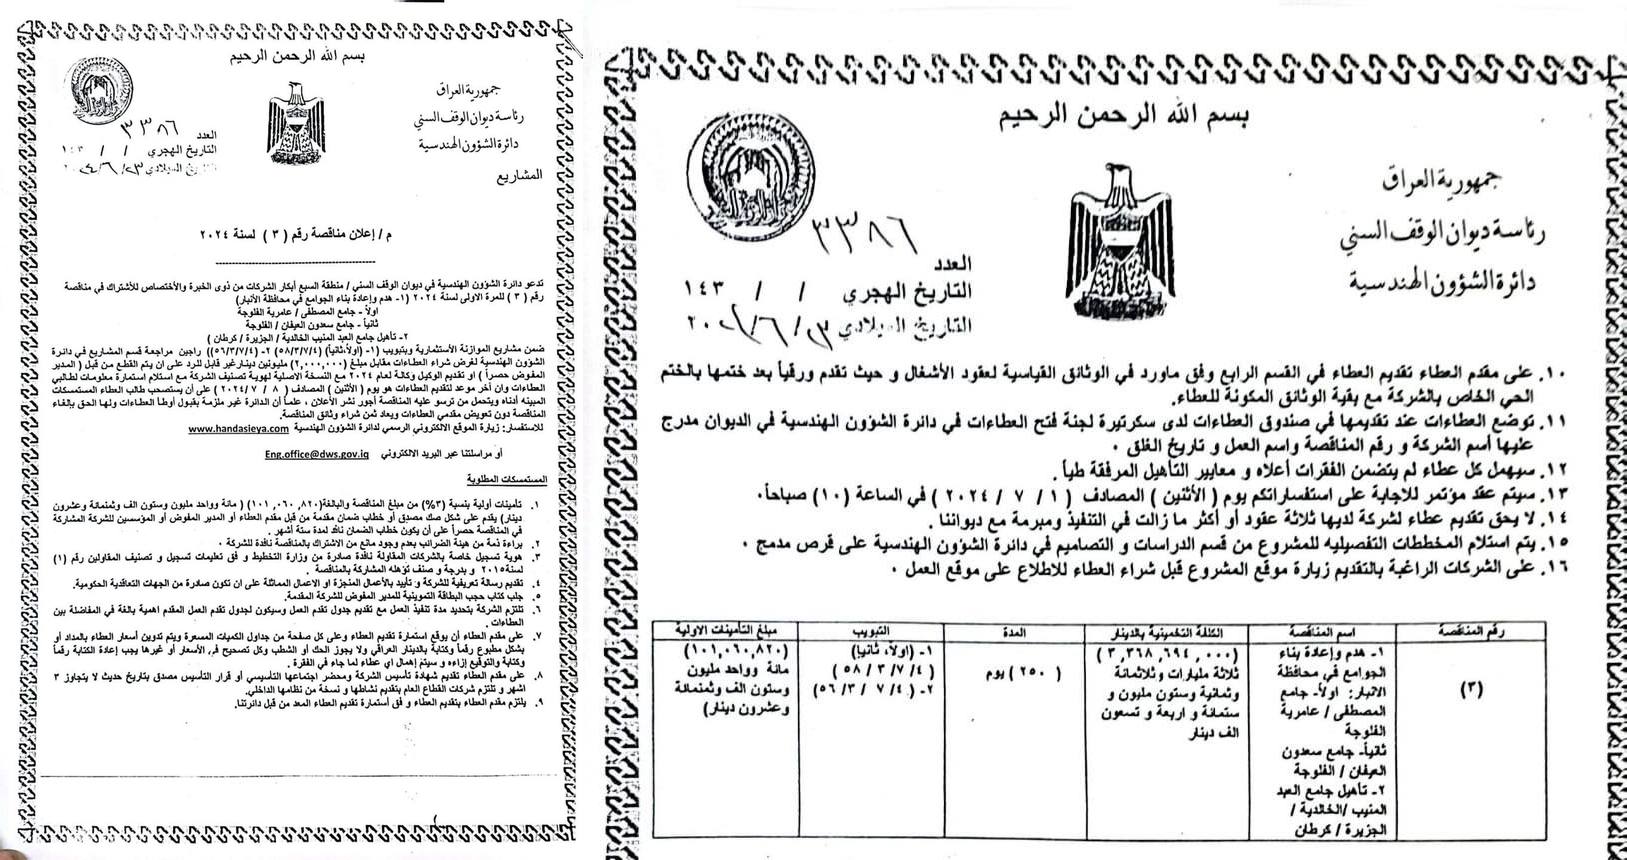 بسم الله الرحمن الرحيم
جمهورية العراق
رئاسة ديوان الوقف السني
دائرة الشؤون الهندسية
المشاريع
العدد ٣٣٨٦
التاريخ الهجري / / ١٤٣
التاريخ الميلادي ٢٠٢٤/٦/٢٣
م / إعلان مناقصة رقم ( ٣ ) لسنة ٢٠٢٤
تدعو دائرة الشؤون الهندسية في ديوان الوقف السني / منطقة السبع أبكار الشركات من ذوي الخبرة والأختصاص للأشتراك في مناقصة
رقم ( ٣ ) للمرة الاولى لسنة ٢٠٢٤ (١- هدم وإعادة بناء الجوامع في محافظة الأنبار)
اولاً - جامع المصطفى / عامرية الفلوجة
ثانياً- جامع سعدون العيفان / الفلوجة
٢- تأهيل جامع العبد المنيب الخالدية / الجزيرة / كرطان )
ضمن مشاريع الموازنة الأستثمارية وبتبويب (١- (اولاً،ثانياً) (٥٨/٣/٧/٤) ٢- (٥٦/٣/٧/٤)) راجين مراجعة قسم المشاريع في دائرة
الشؤون الهندسية لغرض شراء العطاءات مقابل مبلغ (٢,٠٠٠,٠٠٠) مليونين دينار غير قابل للرد على ان يتم القطع من قبل ( المدير
المفوض حصراً ) او تقديم الوكيل وكالة لعام ٢٠٢٤ مع النسخة الاصلية لهوية تصنيف الشركة مع استلام استمارة معلومات لطالبي
العطاءات وان أخر موعد لتقديم العطاءات هو يوم ( الأثنين ) المصادف ( ٨ / ٧ / ٢٠٢٤ ) على أن يستصحب طالب العطاء المستمسكات
المبينه أدناه ويتحمل من ترسو عليه المناقصة أجور نشر الأعلان ، علماً أن الدائرة غير ملزمة بقبول أوطأ العطاءات ولها الحق بإلغاء
المناقصة دون تعويض مقدمي العطاءات ويعاد ثمن شراء وثائق المناقصة.
للأستفسار: زيارة الموقع الالكتروني الرسمي لدائرة الشؤون الهندسية www.handasieya.com
أو مراسلتنا عبر البريد الالكتروني Eng.office@dws.gov.iq
المستمسكات المطلوبة
١. تأمينات أولية بنسبة (٣%) من مبلغ المناقصة والبالغة(١٠١,٠٦٠,٨٢٠) ( مائة وواحد مليون وستون الف وثمنمائة وعشرون
دينار) يقدم على شكل صك مصدق أو خطاب ضمان مقدمة من قبل مقدم العطاء أو المدير المفوض أو المؤسسين للشركة المشاركة
في المناقصة حصراً على أن يكون خطاب الضمان نافذ لمدة ستة أشهر .
٢. براءة ذمة من هيئة الضرائب بعدم وجود مانع من الاشتراك بالمناقصة نافذة للشركة .
٣. هوية تسجيل خاصة بالشركات المقاولة نافذة صادرة من وزارة التخطيط و فق تعليمات تسجيل و تصنيف المقاولين رقم (١)
لسنة ٢٠١٥ و بدرجة و صنف تؤهله المشاركة بالمناقصة .
٤. تقديم رسالة تعريفية للشركة و تأييد بالأعمال المنجزة او الاعمال المماثلة على ان تكون صادرة من الجهات التعاقدية الحكومية.
٥. جلب كتاب حجب البطاقة التموينية للمدير المفوض للشركة المقدمة.
٦. تلتزم الشركة بتحديد مدة تنفيذ العمل مع تقديم جدول تقدم العمل وسيكون لجدول تقدم العمل المقدم اهمية بالغة في المفاضلة بين
العطاءات .
٧. على مقدم العطاء أن يوقع استمارة تقديم العطاء وعلى كل صفحة من جداول الكميات المسعرة ويتم تدوين أسعار العطاء بالمداد أو
بشكل مطبوع رقماً وكتابة بالدينار العراقي ولا يجوز الحك أو الشطب وكل تصحيح في الأسعار أو غيرها يجب إعادة الكتابة رقماً
وكتابة والتوقيع إزاءه و سيتم إهمال اي عطاء لما جاء في الفقرة .
٨. على مقدم العطاء تقديم شهادة تأسيس الشركة ومحضر اجتماعها التأسيسي أو قرار التأسيس مصدق بتاريخ حديث لا يتجاوز ٣
اشهر و تلتزم شركات القطاع العام بتقديم نشاطها و نسخة من نظامها الداخلي.
٩. يلتزم مقدم العطاء بتقديم العطاء و فق أستمارة تقديم العطاء المعد من قبل دائرتنا.
بسم الله الرحمن الرحيم
جمهورية العراق
رئاسة ديوان الوقف السني
دائرة الشؤون الهندسية
العدد ٣٣٨٦
التاريخ الهجري / / ١٤٣
التاريخ الميلادي ٢٠٢٤/٦/٢٣
١٠. على مقدم العطاء تقديم العطاء في القسم الرابع وفق ماورد في الوثائق القياسية لعقود الأشغال و حيث تقدم ورقياً بعد ختمها بالختم
الحي الخاص بالشركة مع بقية الوثائق المكونة للعطاء.
١١. توضع العطاءات عند تقديمها في صندوق العطاءات لدى سكرتيرة لجنة فتح العطاءات في دائرة الشؤون الهندسية في الديوان مدرج
عليها أسم الشركة و رقم المناقصة واسم العمل و تاريخ الغلق .
١٢. سيهمل كل عطاء لم يتضمن الفقرات أعلاه و معايير التأهيل المرفقة طياً.
١٣. سيتم عقد مؤتمر للاجابة على استفساراتكم يوم ( الأثنين ) المصادف ( ١ / ٧ / ٢٠٢٤ ) في الساعة (١٠) صباحاً.
١٤. لا يحق تقديم عطاء لشركة لديها ثلاثة عقود أو أكثر ما زالت في التنفيذ ومبرمة مع ديواننا .
١٥. يتم استلام المخططات التفصيليه للمشروع من قسم الدراسات و التصاميم في دائرة الشؤون الهندسية على قرص مدمج .
١٦. على الشركات الراغبة بالتقديم زيارة موقع المشروع قبل شراء العطاء للاطلاع على موقع العمل .
رقم المناقصة اسم المناقصة الكلفة التخمينية بالدينار المدة التبويب مبلغ التأمينات الاولية
(٣)
١- هدم وإعادة بناء
الجوامع في محافظة
الانبار: اولاً- جامع
المصطفى / عامرية
الفلوجة
ثانياً- جامع سعدون
العيفان / الفلوجة
٢- تأهيل جامع العبد
المنيب /الخالدية /
الجزيرة / كرطان
(٣,٣٦٨,٦٩٤,٠٠٠)
ثلاثة مليارات وثلاثمائة
وثمانية وستون مليون و
ستمائة و اربعة و تسعون
الف دينار
( ٢٥٠ ) يوم
١- (اولاً، ثانياً)
(٥٨ / ٣ / ٧ / ٤)
٢- (٥٦ / ٣ / ٧ / ٤)
(١٠١,٠٦٠,٨٢٠)
مائة وواحد مليون
وستون الف وثمنمائة
وعشرون دينار)